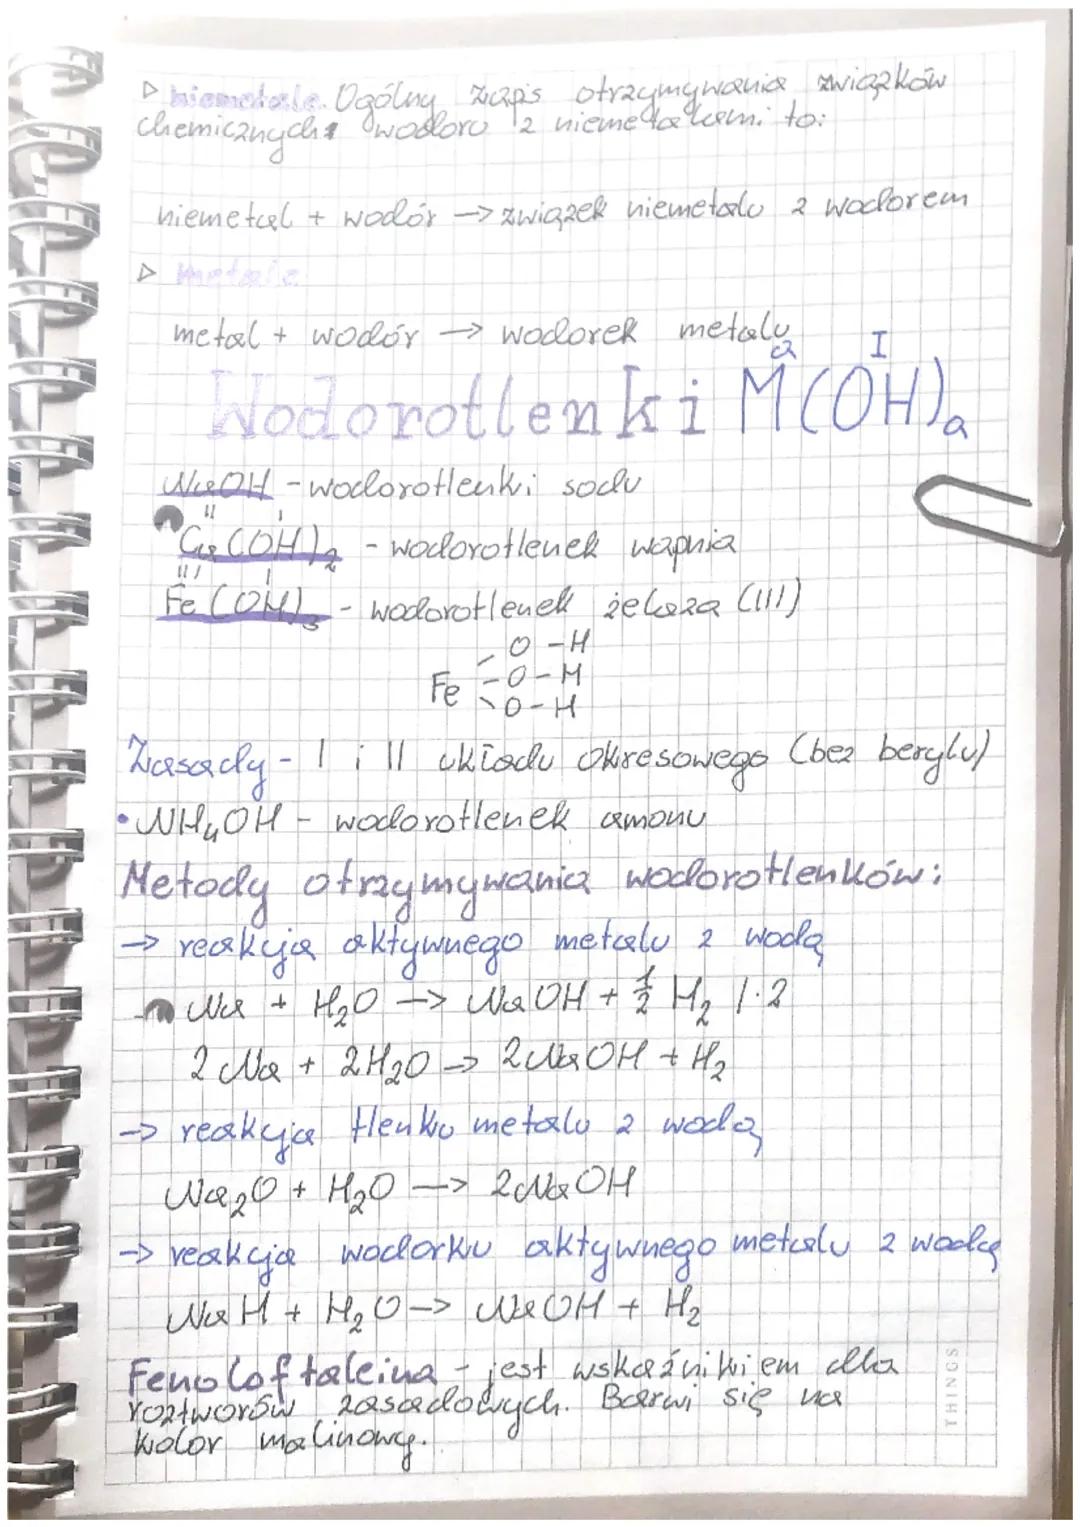 ▷ niemetale. Ogólny zapis otrzymywania związków
chemicznych: wodoru z niemetalami to:
niemetal + wodór → związek niemetalu z wodorem
▷ metale
metal + wodór → wodorek metalu
Wodorotlenki M(OH)ₐ
a I
NaOH - wodorotlenki sodu
II I
Ca(OH)₂ - wodorotlenek wapnia
III I
Fe(OH)₃ - wodorotlenek żelaza (III)
O-H
Fe -O-H
O-H
Zasady - I i II układu okresowego (bez berylu)
• NH₄OH - wodorotlenek amonu
Metody otrzymywania wodorotlenków:
→ reakcja aktywnego metalu z wodą
Na + H₂O → NaOH + ½ H₂ /·2
2Na + 2H₂O → 2NaOH + H₂
→ reakcja tlenku metalu z wodą
Na₂O + H₂O → 2NaOH
→ reakcja wodorku aktywnego metalu z wodą
NaH + H₂O → NaOH + H₂
Fenoloftaleina - jest wskaźnikiem dla
roztworów zasadowych. Barwi się na
kolor malinowy.
THINGS